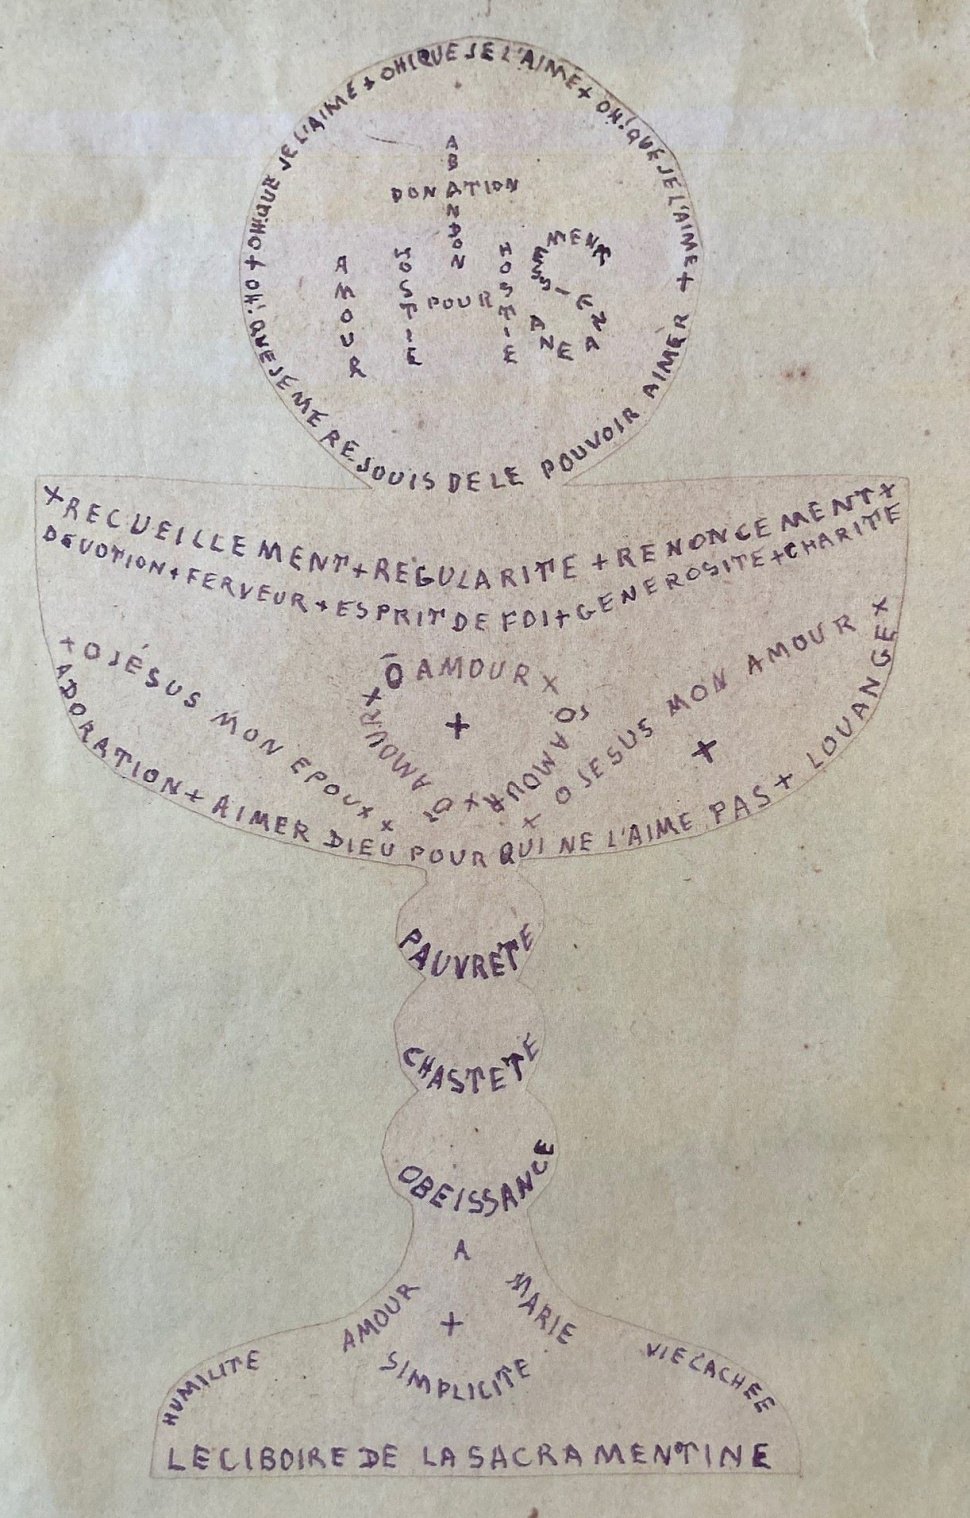 + OH! QUE JE L'AIME + OH! QUE JE L'AIME + OH! QUE JE L'AIME +
OH! QUE JE ME REJOUIS DE LE POUVOIR AIMER
ABANDON
DONATION
AMOUR
HOSTIE
POUR
HOSTIE
+ RECUEILLEMENT + REGULARITE + RENONCEMENT +
DEVOTION + FERVEUR + ESPRIT DE FOI + GENEROSITE + CHARITE
+ O JÉSUS MON EPOUX X
Ô AMOUR X
Ô AMOUR X
Ô AMOUR X
+
X O JESUS MON AMOUR X
+
ADORATION + AIMER DIEU POUR QUI NE L'AIME PAS + LOUANGE
PAUVRETE
CHASTETE
OBEISSANCE
AMOUR A MARIE
+
SIMPLICITE
HUMILITE
VIE CACHEE
LE CIBOIRE DE LA SACRAMENTINE